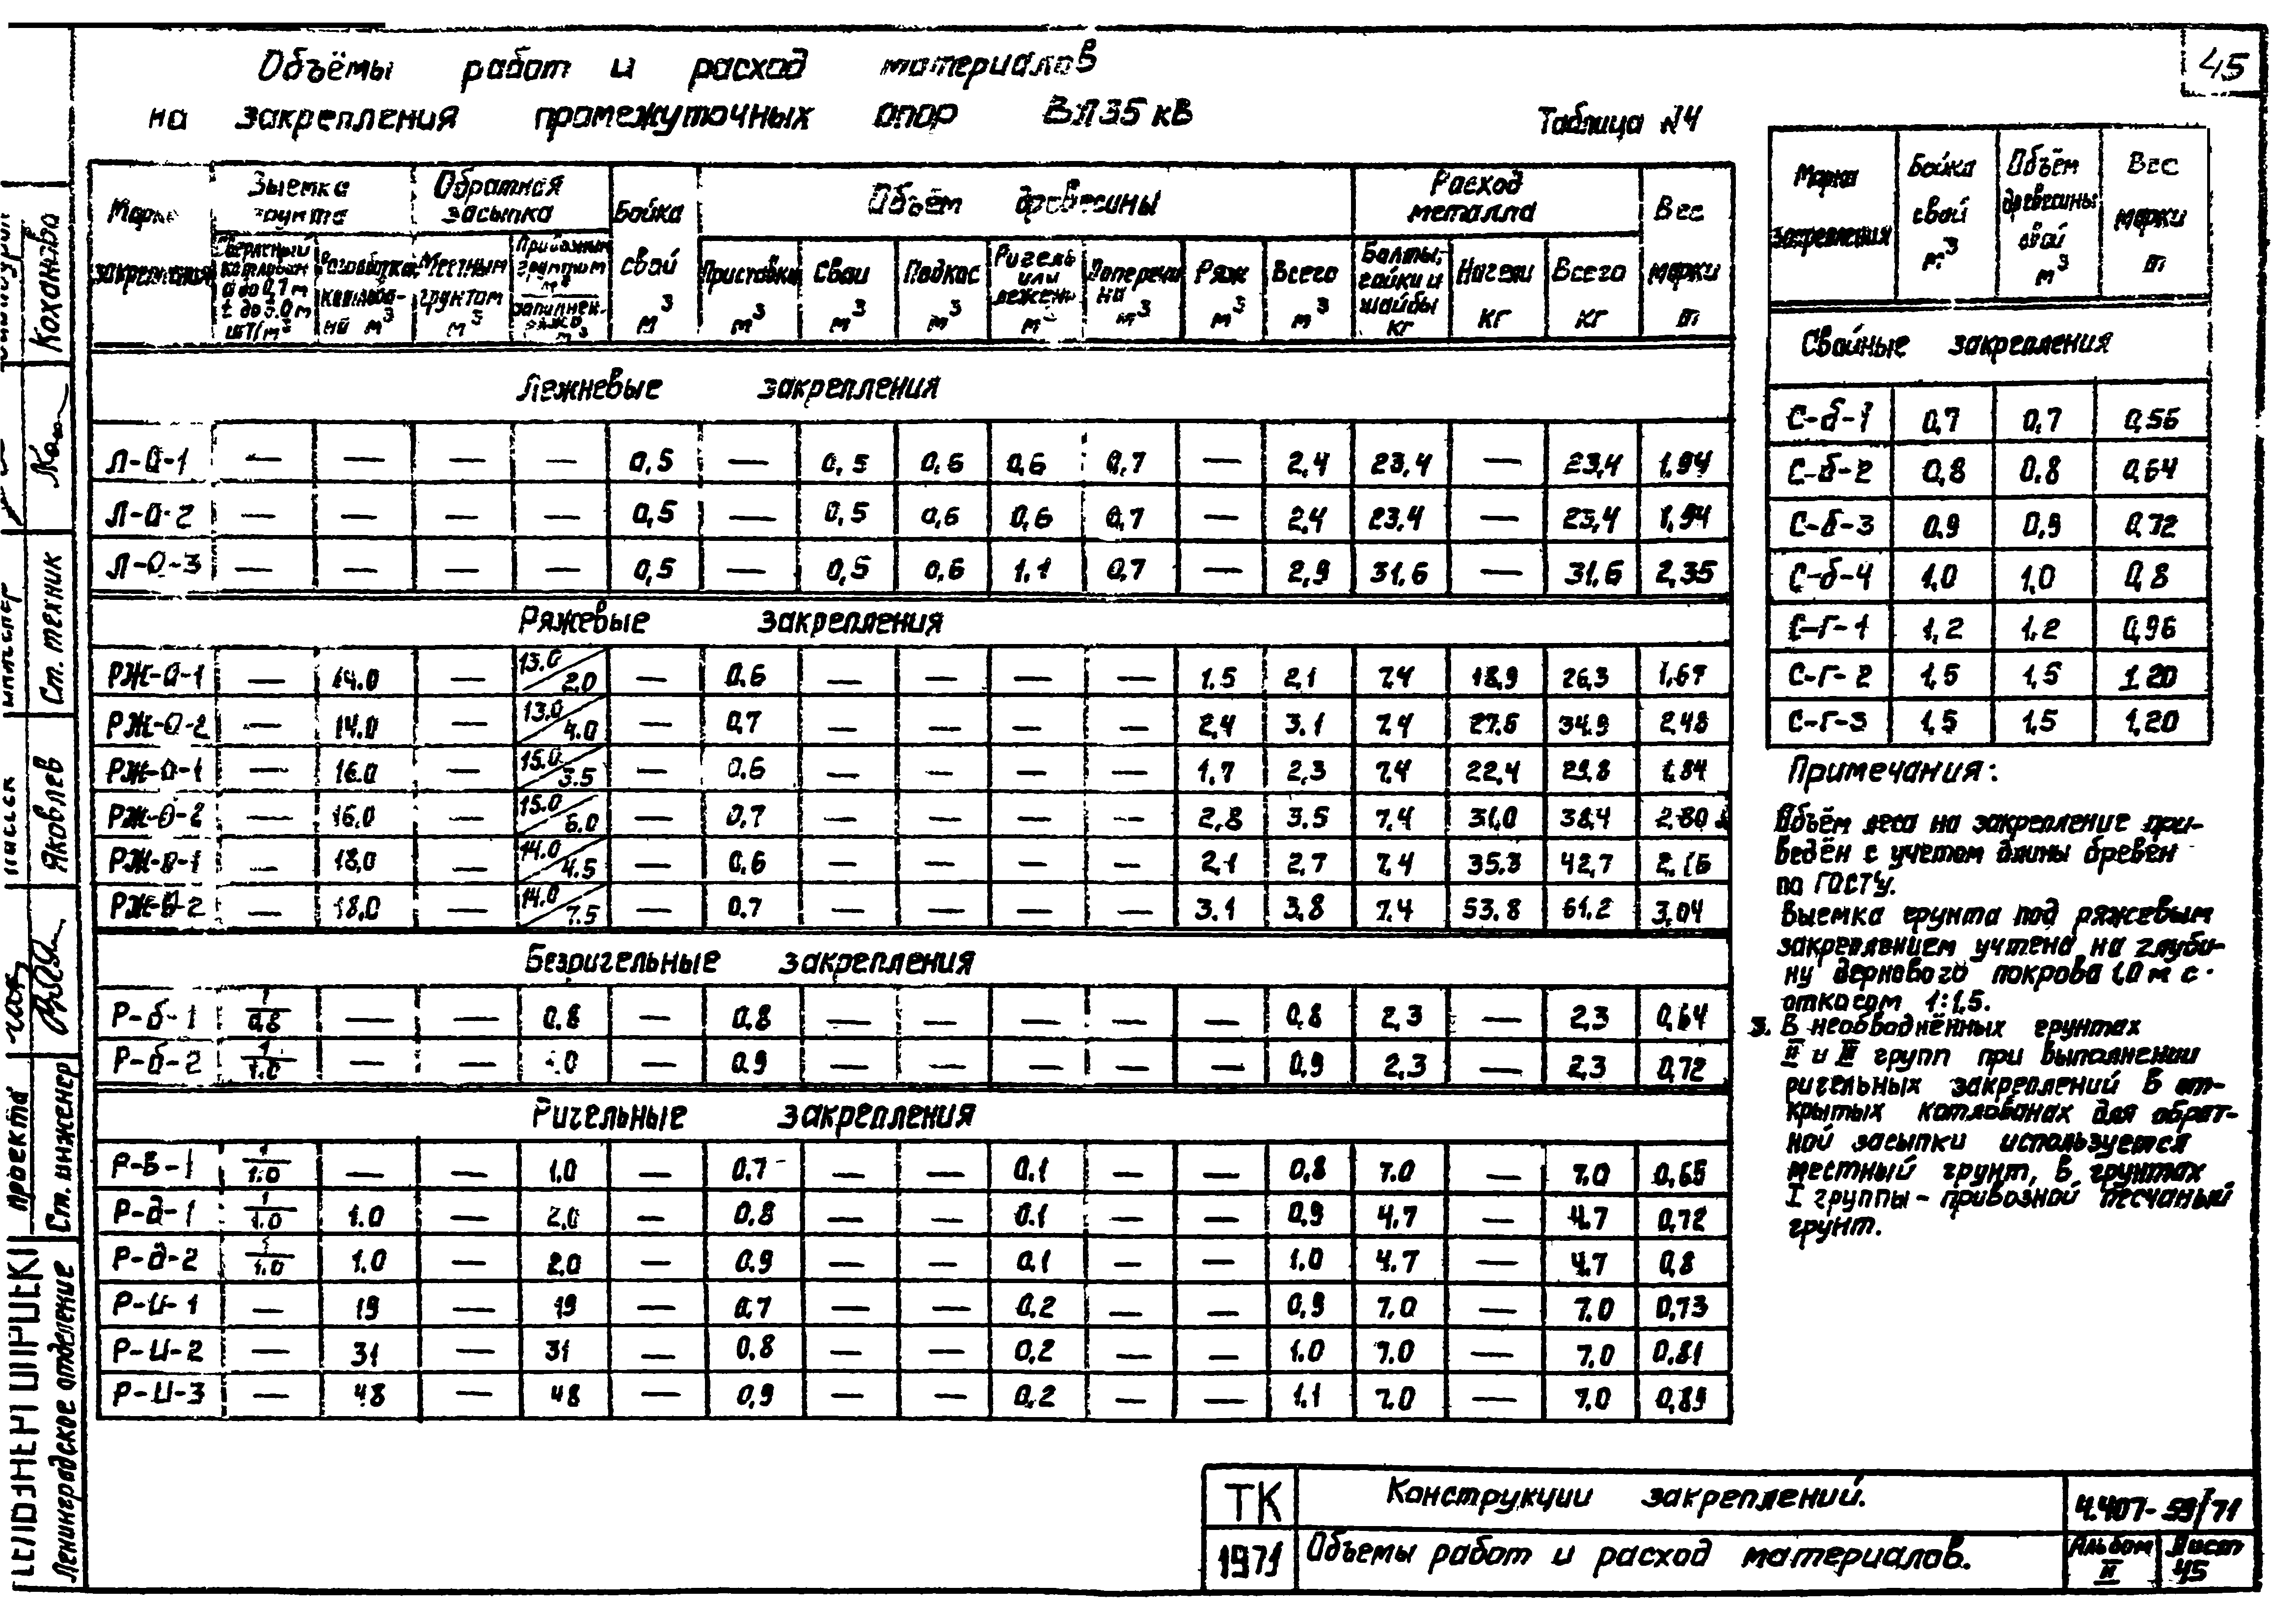 45
Объёмы работ и расход материалов
на закрепления промежуточных опор ВЛ 35 кВ
Таблица №4
Марка закрепления | Выемка грунта | Обратная засыпка | Бойка свай м3 | Объём древесины | Расход металла | Вес марки т
котлован d до 0,7 м t до 3.0 м шт/м3 | Разработка котлова-ний м3 | Местным грунтом м3 | Привозным грунтом м3 заполнен. ряжа м3 | Приставки м3 | Сваи м3 | Подкос м3 | Ригель или лежень м3 | Поперечина м3 | Ряж м3 | Всего м3 | Болты, гайки и шайбы кг | Нагели кг | Всего кг
Лежневые закрепления
Л-а-1 — — — — 0,5 — 0,5 0,6 0,6 0,7 — 2,4 23,4 — 23,4 1,94
Л-а-2 — — — — 0,5 — 0,5 0,6 0,6 0,7 — 2,4 23.4 — 23,4 1,94
Л-а-3 — — — — 0,5 — 0,5 0,6 1,1 0,7 — 2,9 31,6 — 31,6 2,35
Ряжевые закрепления
РЖ-а-1 — 14.0 — 13.0/2.0 — 0.6 — — — — 1.5 2,1 7,4 18,9 26,3 1,67
РЖ-а-2 — 14.0 — 13.0/4.0 — 0,7 — — — — 2,4 3.1 7,4 27.6 34.9 2,48
РЖ-0-1 — 16.0 — 15.0/3.5 — 0.6 — — — — 1,7 2,3 7,4 22,4 29,8 1,84
РЖ-0-2 — 16.0 — 15.0/6.0 — 0,7 — — — — 2,8 3.5 7,4 31,0 38,4 2,80
18,0 — 14.0/4.5 — 0,6 — — — — 2,1 2,7 7,4 35.3 42,7
18,0 — 14.0/7.5 — 0.7 — — — — 3.1 3,8 7,4 53.8 61.2 3,04
Безригельные закрепления
Р-б-1 1/0,8 — — 0.8 — 0,8 — — — — — 0,8 2,3 — 2,3 0,64
Р-б-2 1/1.0 — — .0 — 0.9 — — — — — 0,9 2.3 — 2.3 0,72
Ригельные закрепления
Р-в-1 1/1.0 — — 1,0 — 0.7 — — 0.1 — — 0,8 7.0 — 7,0 0,65
Р-д-1 1/1.0 1.0 — 2,0 — 0,8 — — 0.1 — — 0,9 4.7 — 4.7 0,72
Р-д-2 1/1.0 1.0 — 2,0 — 0.9 — — 0,1 — — 1.0 4.7 — 4.7 0,8
Р-и-1 — 19 — 19 — 0,7 — — 0,2 — — 0,9 7,0 — 7,0 0,73
Р-и-2 — 31 — 31 — 0,8 — — 0,2 — — 1.0 7.0 — 7,0 0,81
Р-и-3 — 48 — 48 — 0,9 — — 0,2 — — 1.1 7,0 — 7,0 0,89
Марка закрепления | Бойка свай м3 | Объём древесины свай м3 | Вес марки т
Свайные закрепления
С-б-1 0,7 0,7 0,56
С-б-2 0,8 0.8 0,64
С-б-3 0.9 0,9 0,72
С-б-4 1,0 1,0 0,8
С-г-1 1,2 1,2 0,96
С-г-2 1,5 1,5 1,20
С-г-3 1,5 1,5 1,20
Примечания:
Объём леса на закрепление при-
ведён с учетом длины бревен
по ГОСТу.
Выемка грунта под ряжевым
закреплением учтена на глуби-
ну дернового покрова 1,0 м с
откосом 1:1,5.
3. В необводнённых грунтах
II и III групп при выполнении
ригельных закреплений в от-
крытых котлованах для обрат-
ной засыпки используется
местный грунт, в грунтах
I группы - привозной песчаный
грунт.
ТК 1971
Конструкции закреплений.
Объемы работ и расход материалов.
4.407-59/71
Альбом II
Лист 45
Коханова
Ст. техник
Яковлев
проекта
Ст. инженер
Ленинградское отделение